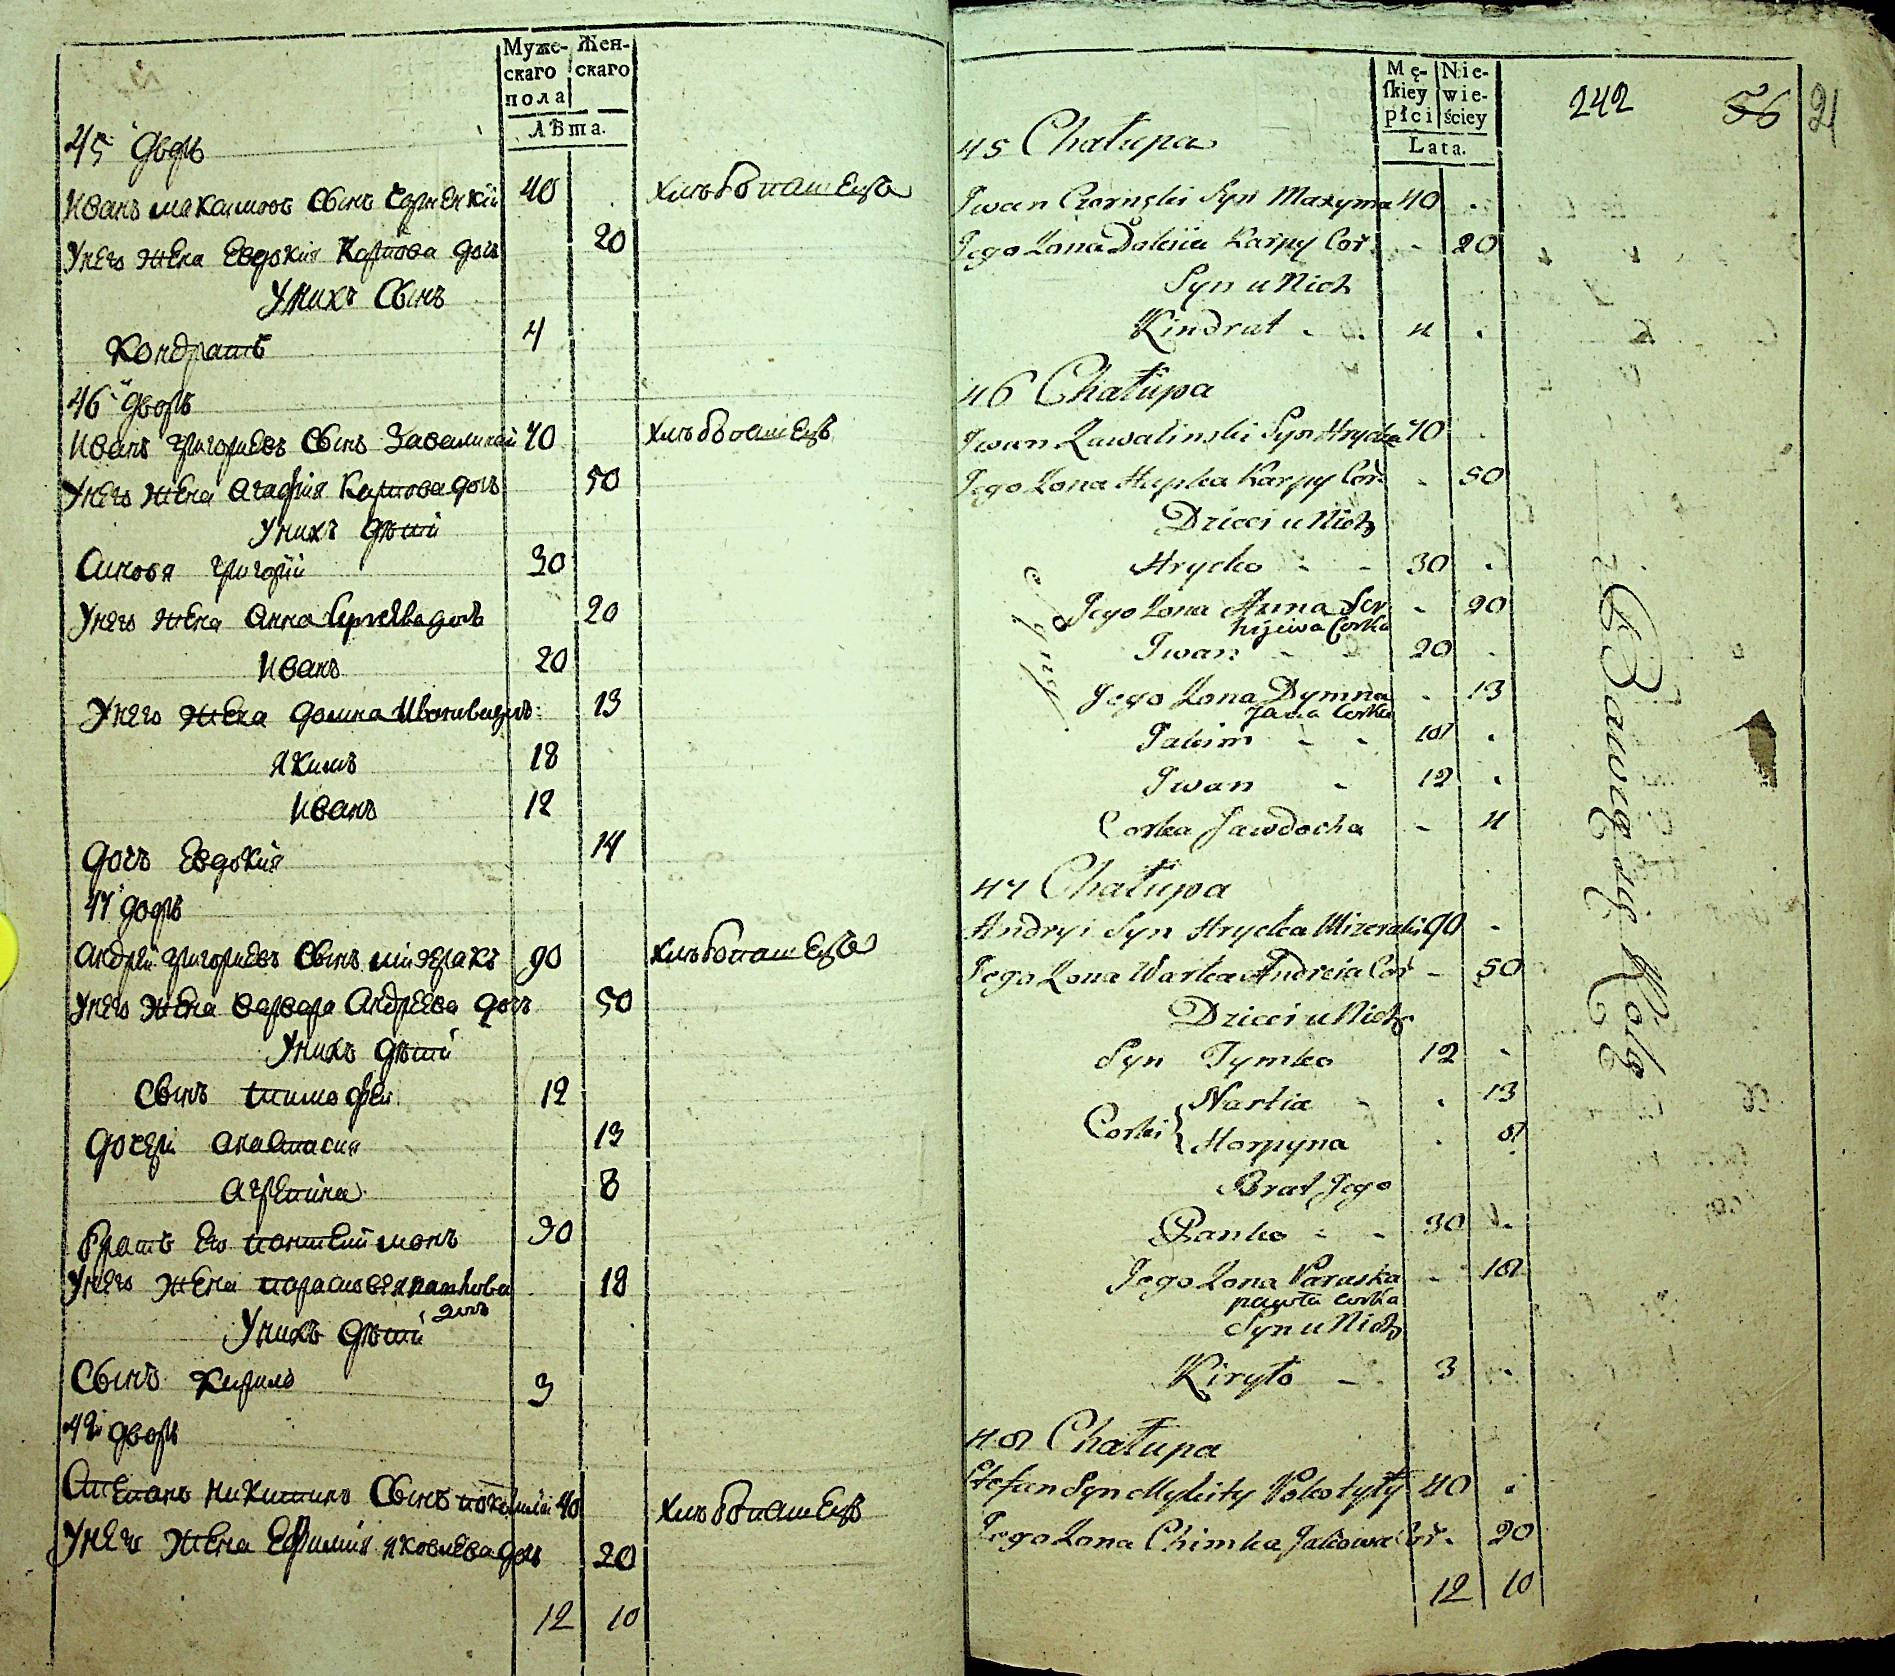 Муже-
скаго
пола
Жен-
скаго
лѣта.
45 дворъ
Иванъ максимовъ Сынъ Чорненкій 40 хлѣбопашецъ
Унего жена Евдокия Карпова дочь 20
Унихъ Сынъ
Кондратъ 4
46 дворъ
Иванъ григориевъ Сынъ Завалинский 70 хлѣбопашецъ
Унего жена агафия Карпова дочь 50
Унихъ дѣти
Синовя григорий 30
Унего жена анна Сергеева дочь 20
Иванъ 20
Унего жена домна Иванова дочь: 13
якимъ 18
Иванъ 12
дочь Евдокия 14
47 дворъ
андрей григориевъ Сынъ мизеракъ 90 хлѣбопашецъ
Унего жена варвара андреева дочь 50
Унихъ дѣти
Сынъ тимофей 12
дочери анастасия 13
агрепина 8
братъ Его пантелимонъ 30
Унего жена парасковия павлова дочь 18
Унихъ дѣти
Сынъ Кирило 3
48 дворъ
Степанъ никитинъ Сынъ 40 хлѣбопашецъ
Унего жена Ефимия яковлева дочь 20
12 10
Mę-
ſkiey
płci
Nie-
wie-
ściey
Lata.
242 56 21
45 Chałupa
Jwan Czornęki Syn Maxyma 40 .
Jego Zona Dokiia Karpy Cor. - 20
Syn u Nich
Kindrat . 4 .
46 Chałupa
Jwan Zawalinski Syn Hrycka 70 .
Jego Zona Hapka Karpy Cor. - 50
Dzieci u Nich
Hrycko - - 30 .
Synij
Jego Zona Anna Ser - 20
hijewa Corka
Jwan - 20 .
Jego Zona Dymna - 13
Jana Corka
Jakim - - 18 .
Jwan - 12 .
Corka Jawdocha - 14
47 Chałupa
Andryi Syn Hrycka Mizerak 90 .
Jego Zona Warka Andreia Cor - 50
Dzieci u Nich
Syn Tymko 12 .
Corki { Nastia - . 13
Horpyna . 8
Brat Jego
Panko - - 30 .
Jego Zona Paraska - 18
pawła corka
Syn u Nich
Kiryło - 3 .
48 Chałupa
Stefan Syn Mykity Pokotyły 40 .
Jego Zona Chimka Jakowa Cor. 20
12 10